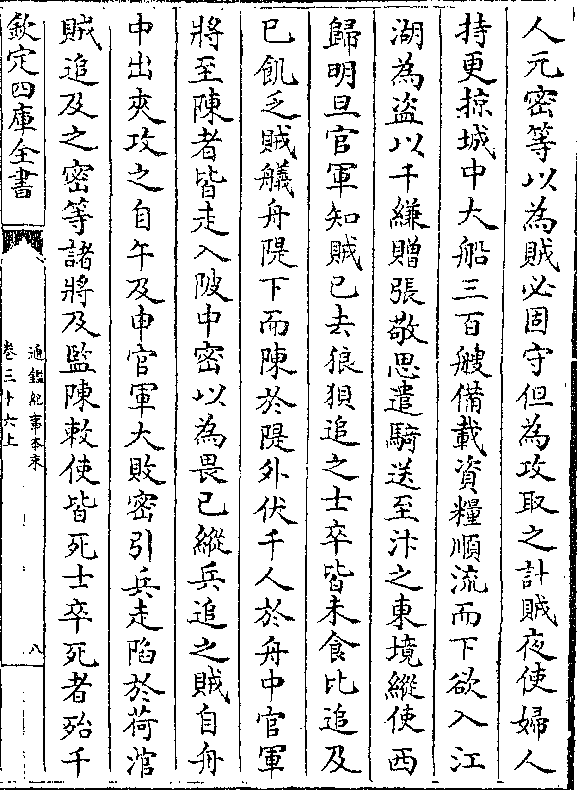 人元密等以為賊必固守但為攻取之計賊夜使婦人
持更掠城中大船三百艘備載資糧順流而下欲入江
湖為盗以千縑贈張敬思遣騎送至汴之東境縱使西
歸明旦官軍知賊已去狼狽追之士卒皆未食比追及
已飢乏賊艤舟隄下而陳於隄外伏千人於舟中官軍
將至陳者皆走入陂中密以為畏已縱兵追之賊自舟
中出夾攻之自午及申官軍大敗密引兵走陷於荷涫
賊追及之密等諸將及監陳敕使皆死士卒死者殆千
欽定四庫全書
通鑑紀事本末
卷三十六上
八